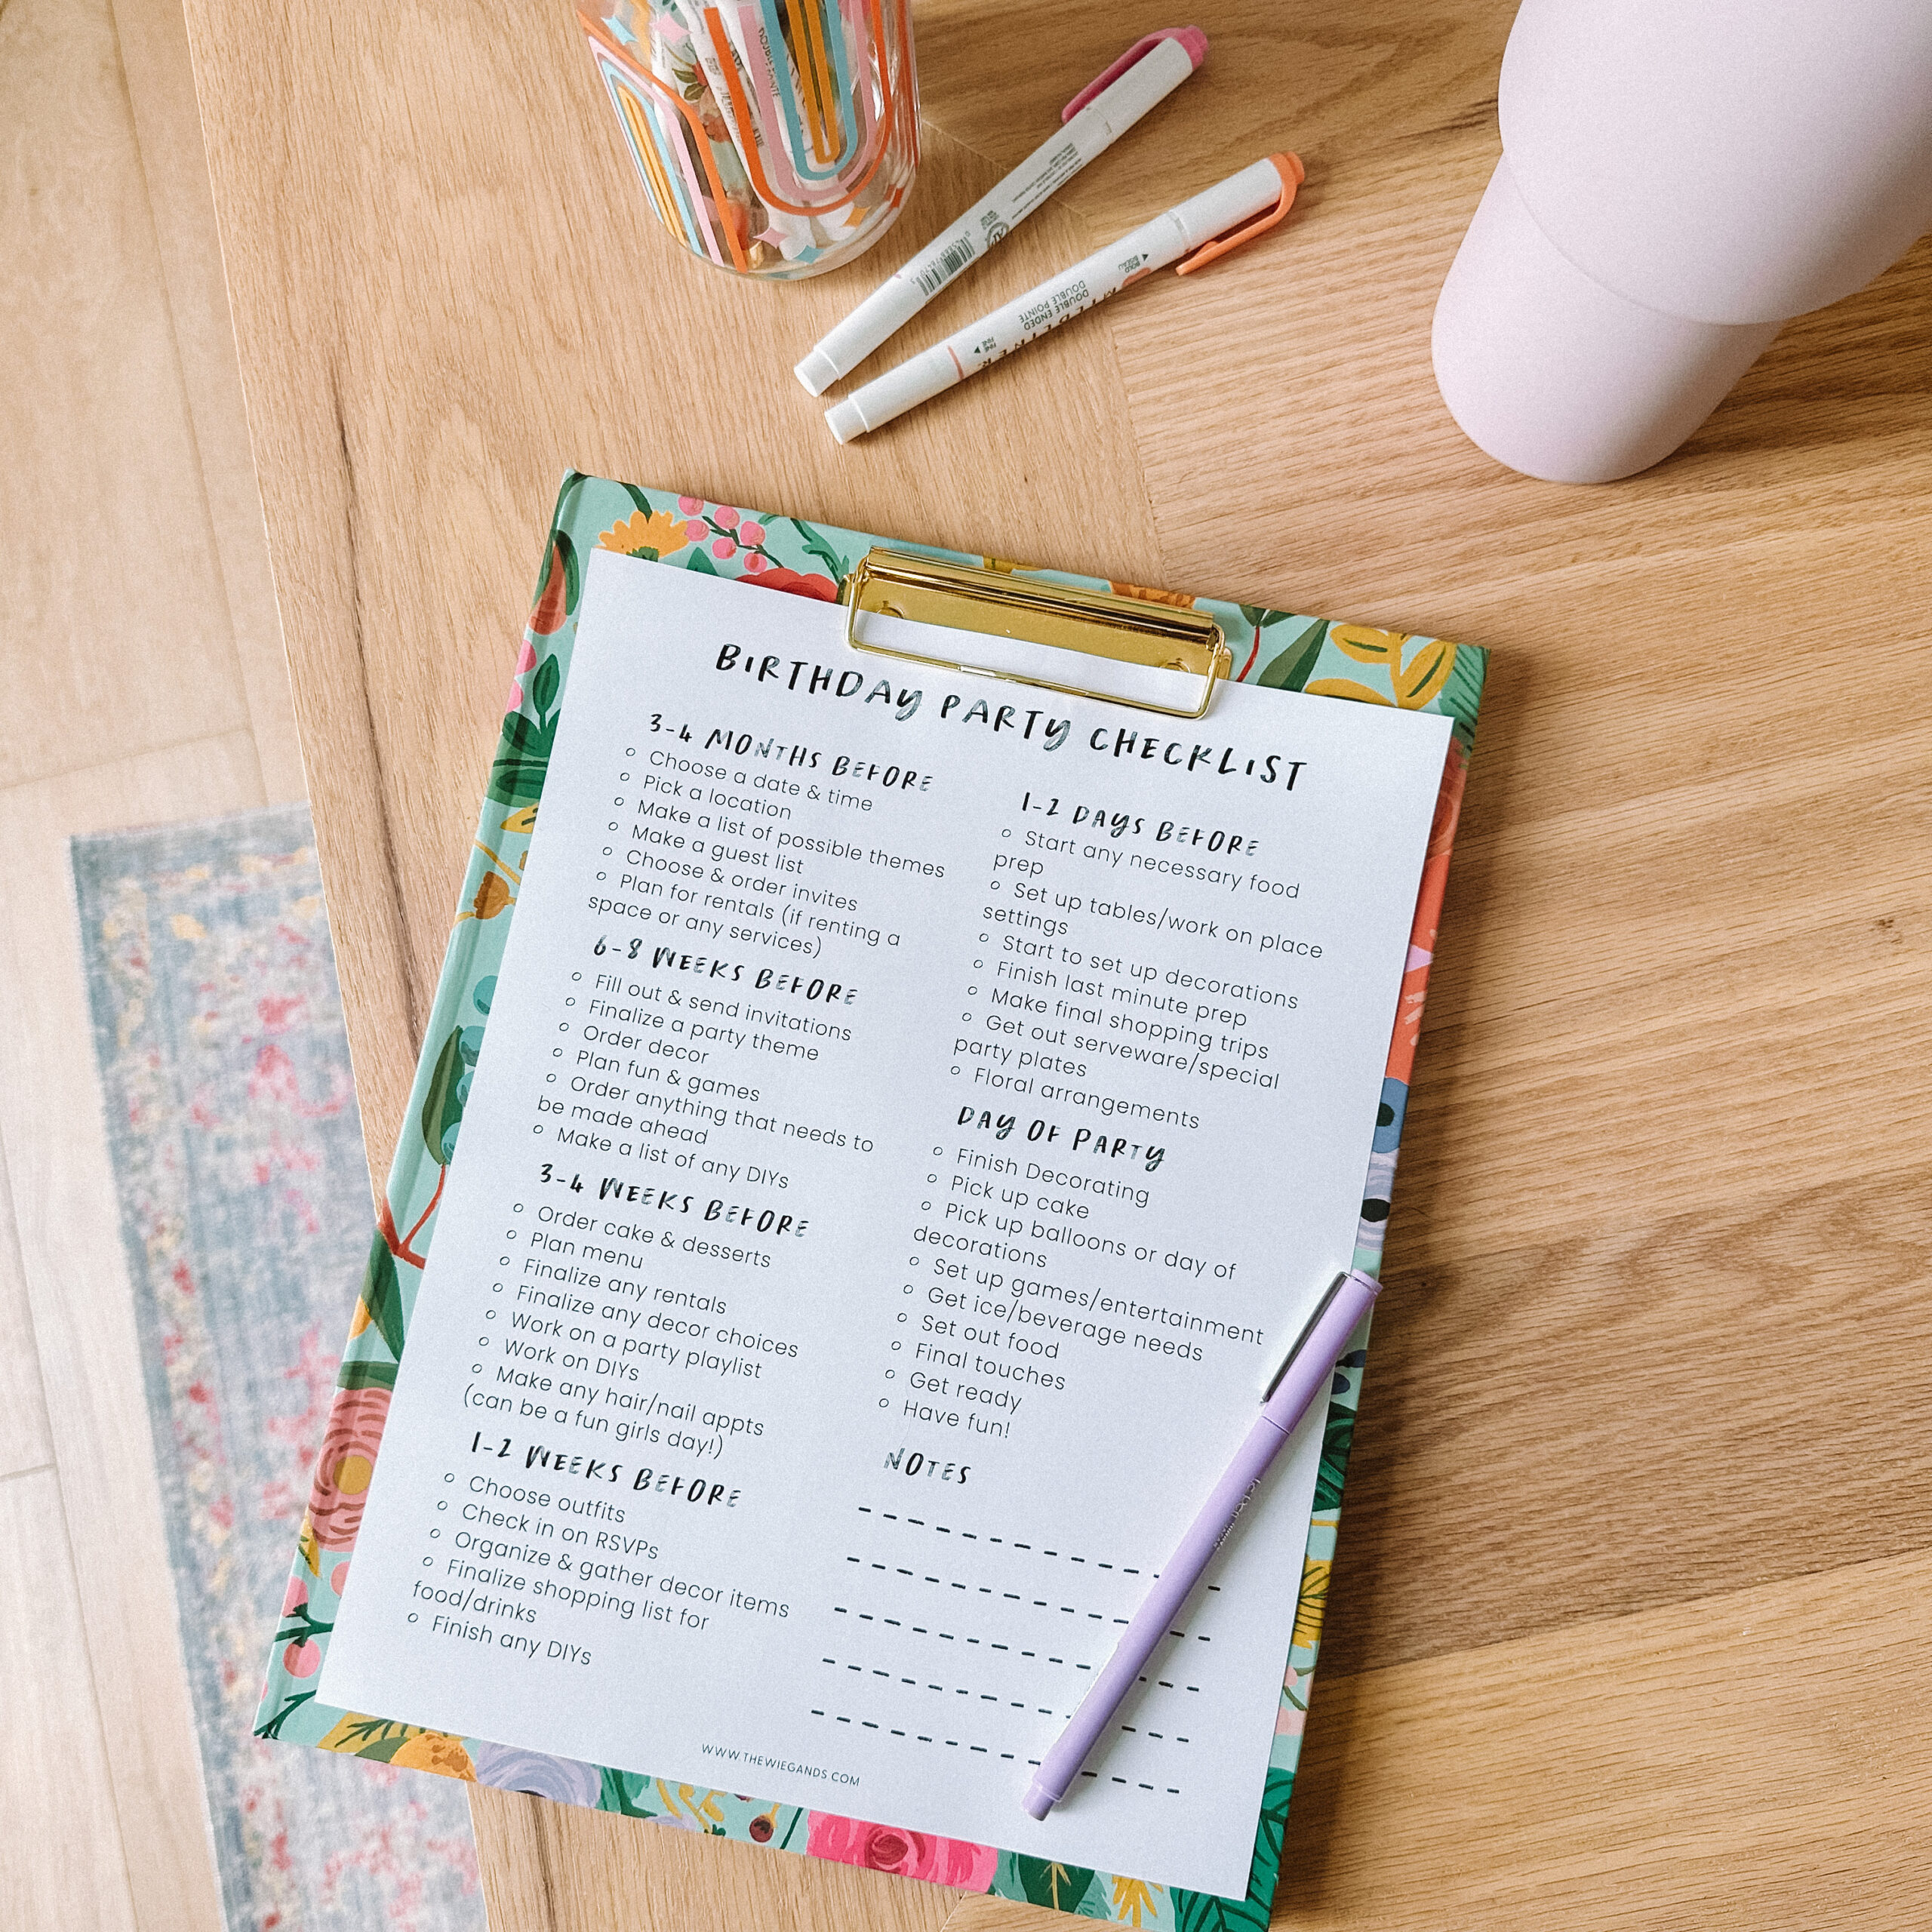 DOUBLE ENDED
DOUBLE POINTE
FINE
BIRTHDAY PARTY CHECKLIST
3-4 MONTHS BEFORE
Choose a date & time
Pick a location
Make a list of possible themes
Make a guest list
Choose & order invites
Plan for rentals (if renting a
space or any services)
6-8 WEEKS BEFORE
Fill out & send invitations
Finalize a party theme
Order decor
Plan fun & games
Order anything that needs to
be made ahead
Make a list of any DIYs
3-4 WEEKS BEFORE
Order cake & desserts
Plan menu
Finalize any rentals
Finalize any decor choices
Work on a party playlist
Work on DIYs
Make any hair/nail appts
(can be a fun girls day!)
1-2 WEEKS BEFORE
Choose outfits
Check in on RSVPs
Organize & gather decor items
Finalize shopping list for
food/drinks
Finish any DIYs
1-2 DAYS BEFORE
Start any necessary food
prep
Set up tables/work on place
settings
Start to set up decorations
Finish last minute prep
Make final shopping trips
Get out serveware/special
party plates
Floral arrangements
DAY OF PARTY
Finish Decorating
Pick up cake
Pick up balloons or day of
decorations
Set up games/entertainment
Get ice/beverage needs
Set out food
Final touches
Get ready
Have fun!
NOTES
WWW.THEWIEGANDS.COM